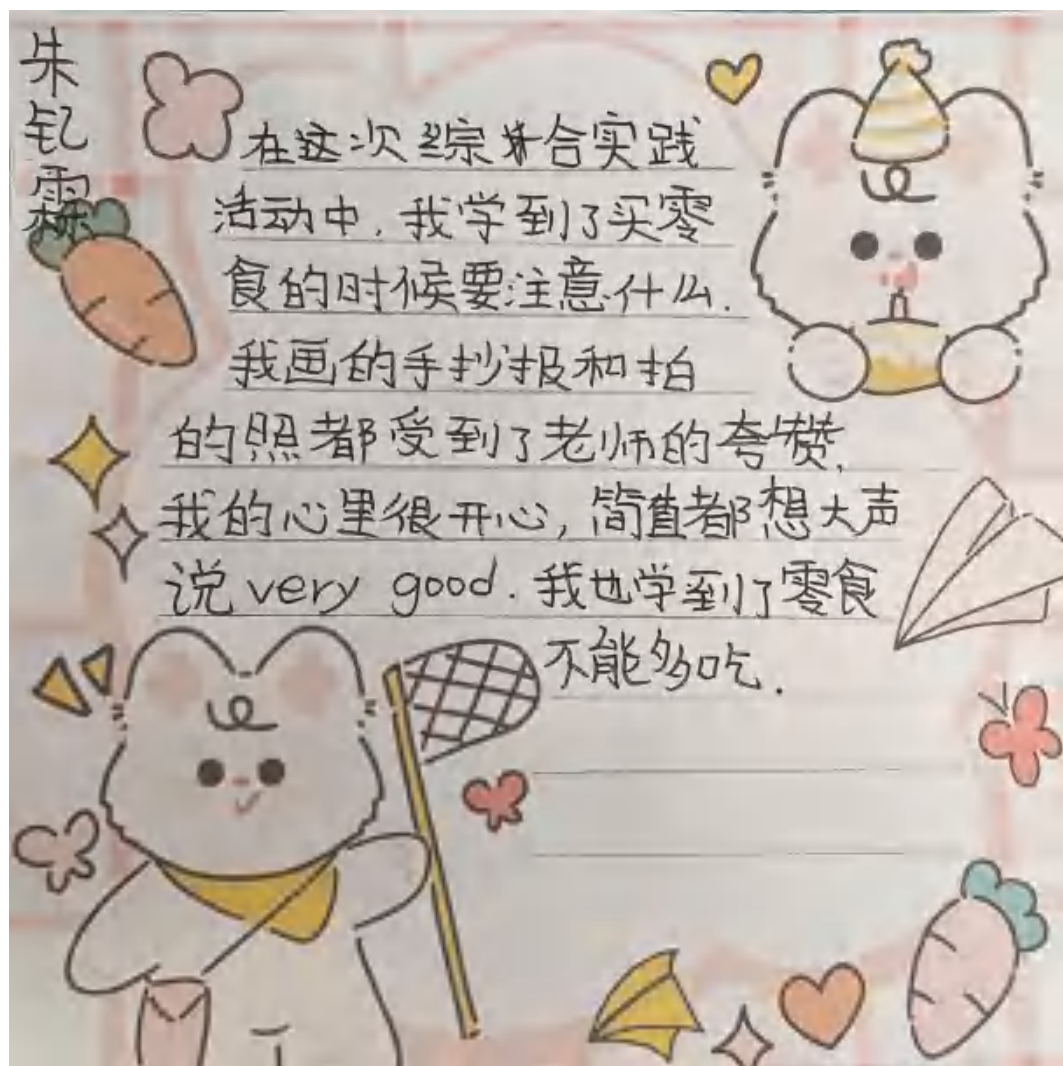 朱钇霖
在这次综合实践
活动中,我学到了买零
食的时候要注意什么.
我画的手抄报和拍
的照都受到了老师的夸赞,
我的心里很开心,简直都想大声
说 very good.我也学到了零食
不能多吃.